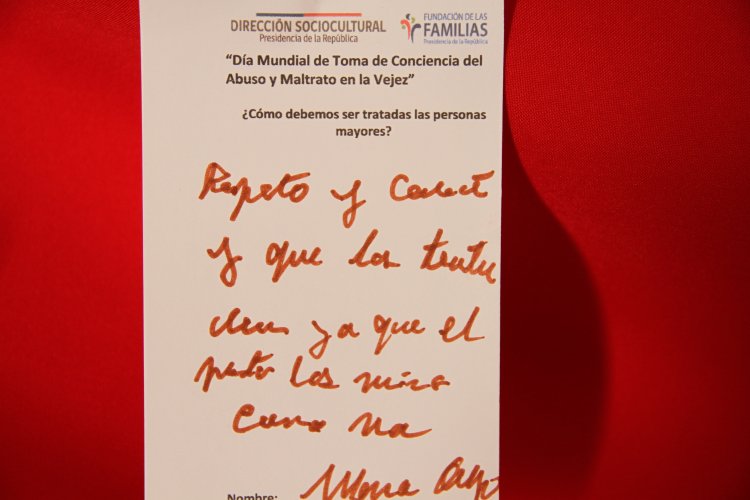 DIRECCIÓN SOCIOCULTURAL
Presidencia de la República
FUNDACIÓN DE LAS
FAMILIAS
Presidencia de la República
“Día Mundial de Toma de Conciencia del
Abuso y Maltrato en la Vejez”
¿Cómo debemos ser tratadas las personas
mayores?
Respeto y
y que los
ya que el
los mira
como
Nombre: